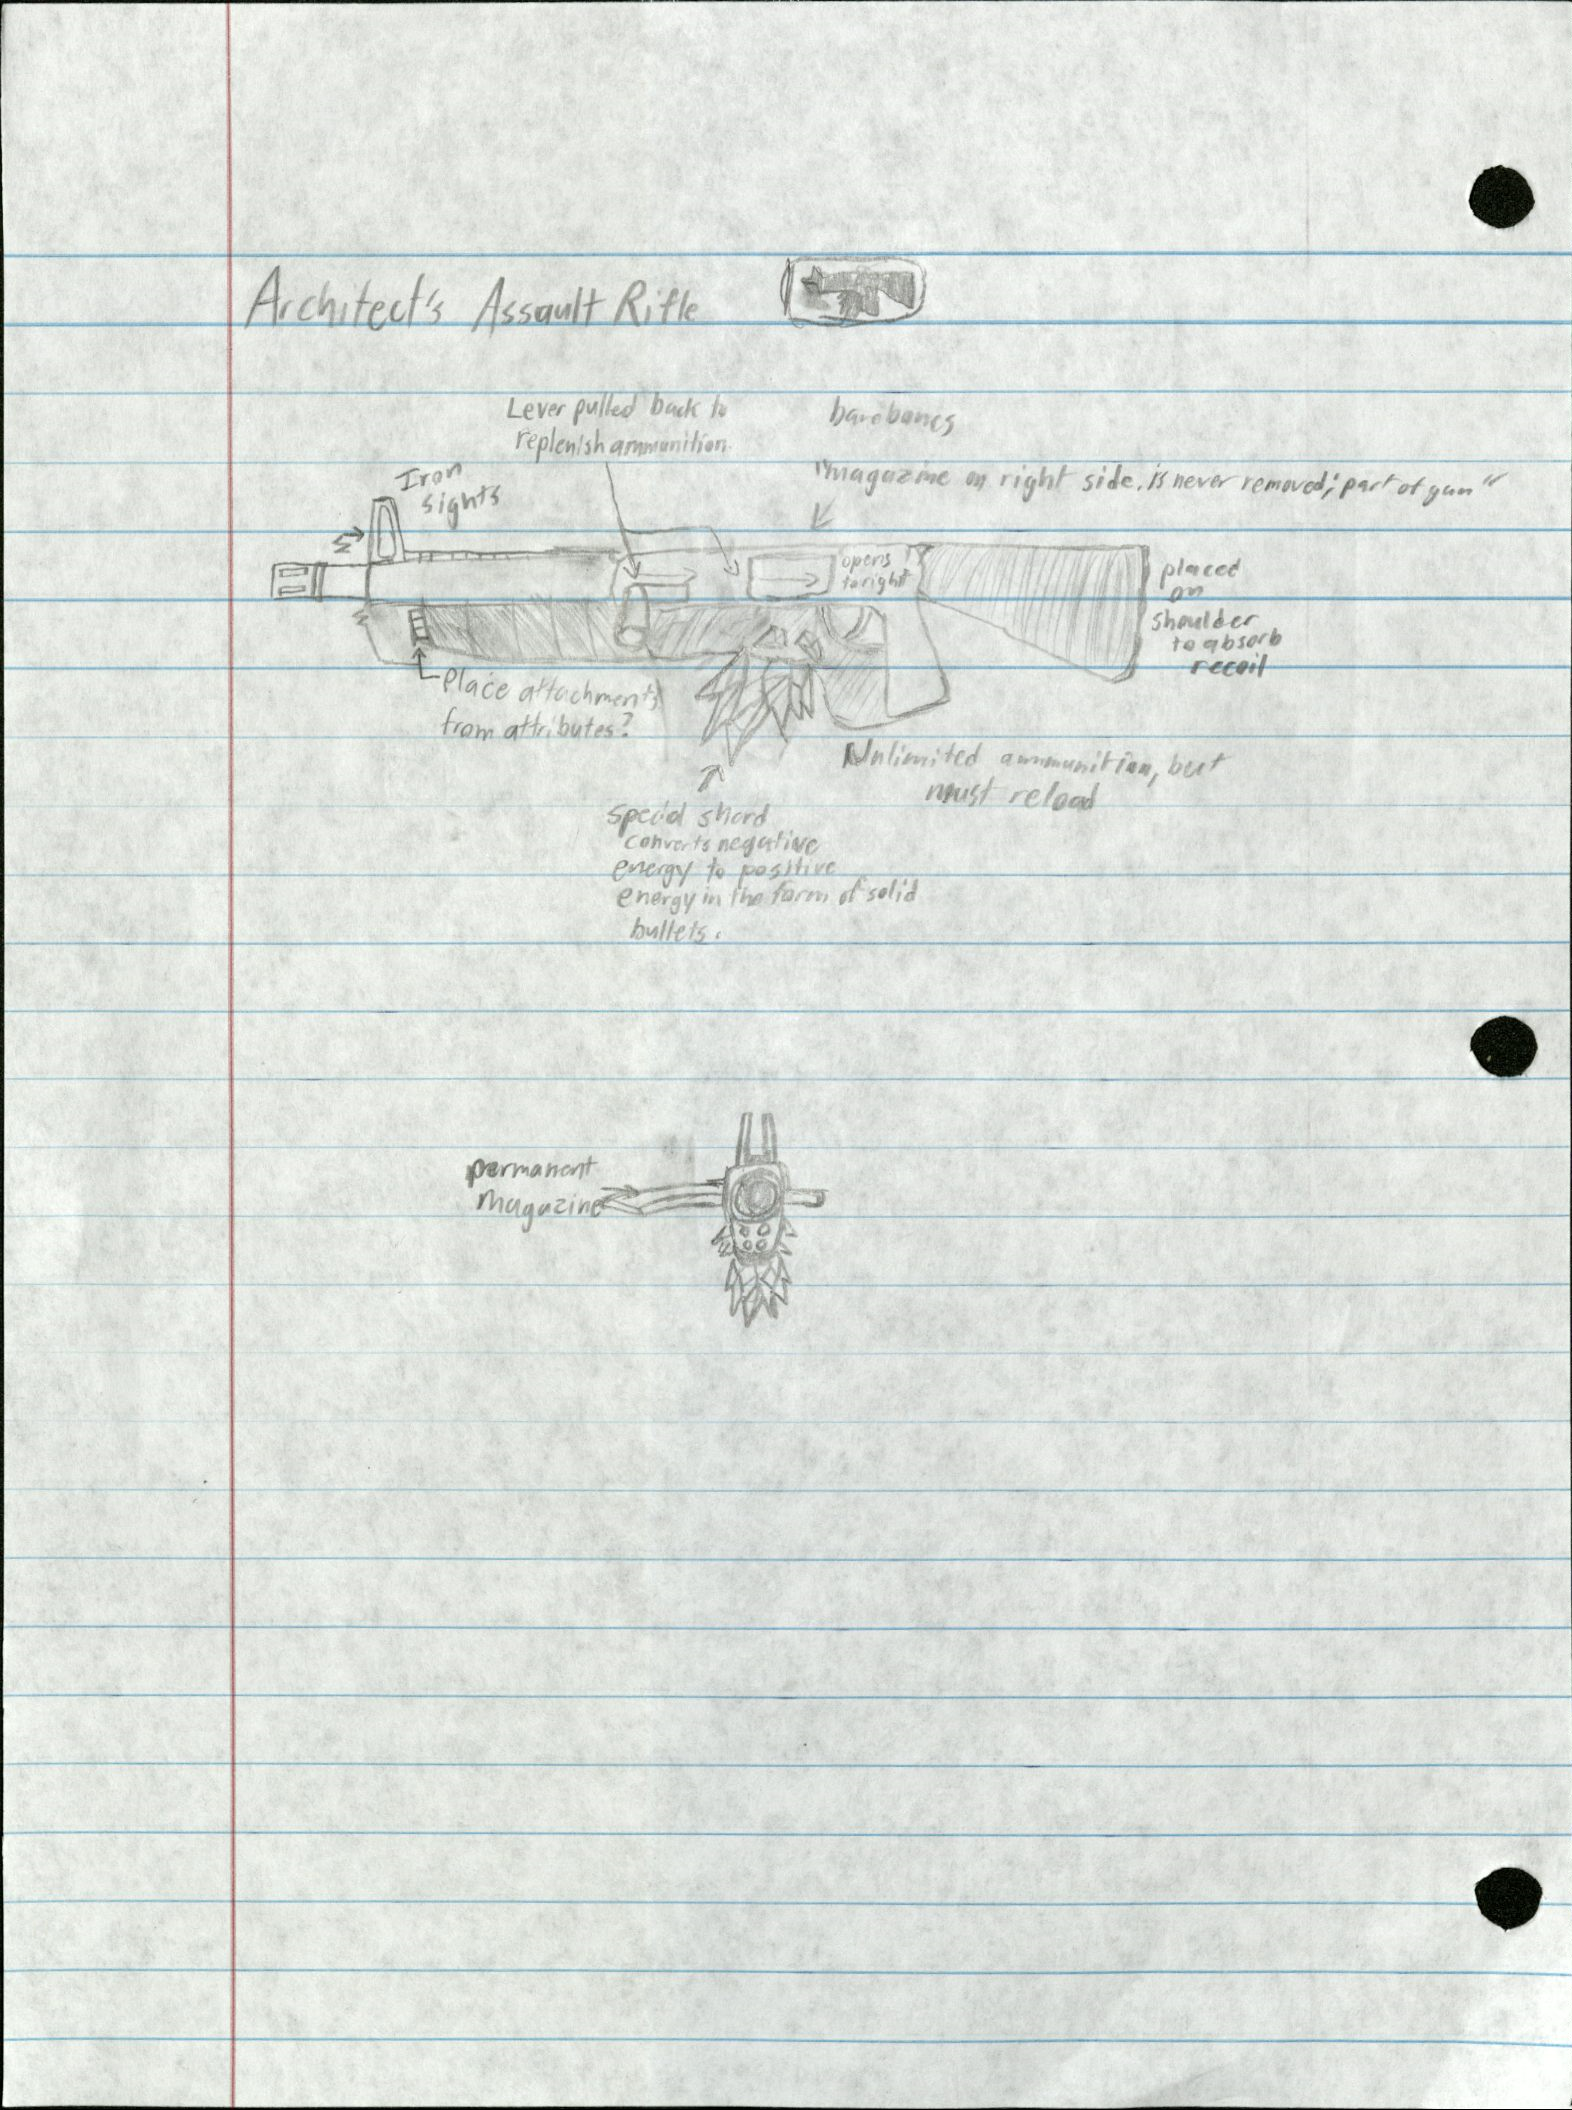 Architect's Assault Rifle
Lever pulled back to
replenish ammunition.
barebones
Iron
sights
"magazine on right side, is never removed; part of gun"
opens
to right
placed
on
shoulder
to absorb
recoil
Place attachments
from attributes?
Unlimited ammunition, but
must reload
Special shard
converts negative
energy to positive
energy in the form of solid
bullets.
permanent
magazine